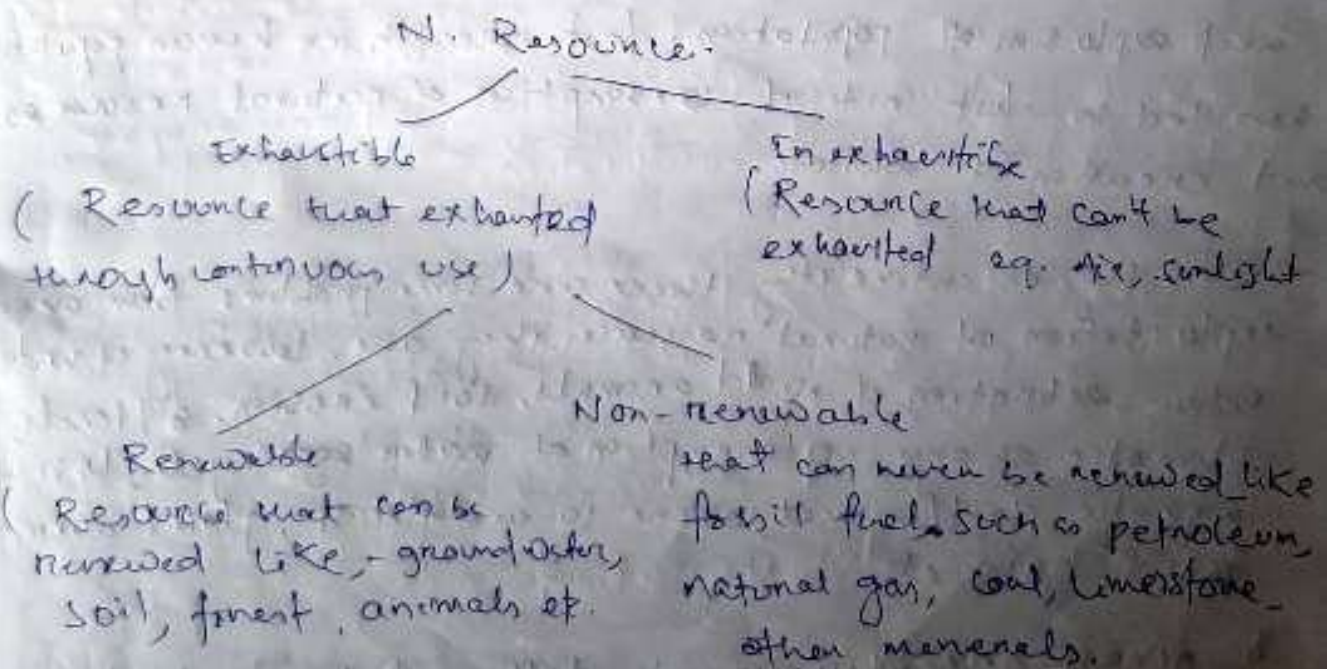 N. Resource.
Exhaustible
(Resource that exhausted
through continuous use)
Inexhaustible
(Resource that can't be
exhausted eg. Air, sunlight
Renewable
(Resource that can be
renewed like,- groundwater,
soil, forest, animals etc.
Non-renewable
that can never be renewed like
fossil fuel such as petroleum,
natural gas, coal, limestone
other minerals.